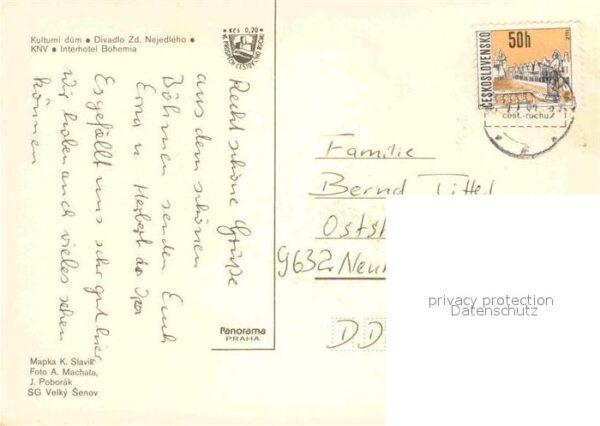 Kulturní dům • Divadlo Zd. Nejedlého •
KNV • Interhotel Bohemia
Kčs 0,20
Recht schöne Grüße
aus dem schönen
Böhmen senden Euch
Erna u Herbert
Es gefällt uns sehr gut hier
wir haben auch vieles sehen
können
Panorama
PRAHA
Mapka K. Slavík
Foto A. Machala,
J. Poborák
SG Velký Šenov
ČESKOSLOVENSKO
50h
Familie
Bernd Tittel
Oststr
9632 Neu
DD
privacy protection
Datenschutz